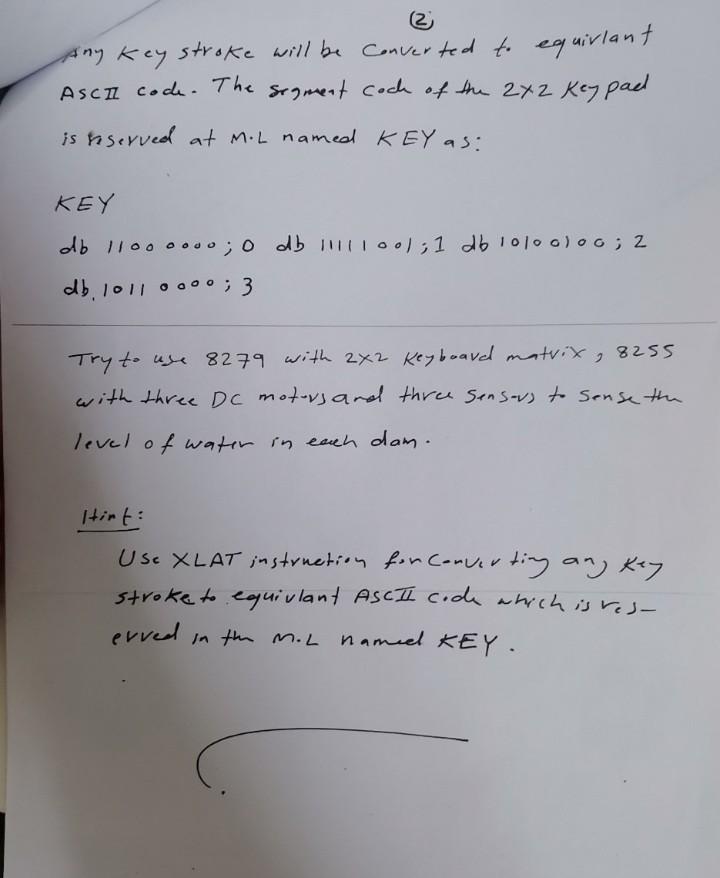 2
Any Key stroke will be Converted to equivlant
ASCII code. The segment code of the 2x2 Key pad
is reserved at M.L named KEY as:
KEY
db 11000000; 0 db 11111001; 1 db 10100100; 2
db 10110000; 3
Try to use 8279 with 2x2 Keyboard matrix, 8255
with three DC motors and three sensors to sense the
level of water in each dam.
Hint:
Use XLAT instruction for Converting any Key
stroke to equivlant ASCII code which is res-
erved in the M.L named KEY.